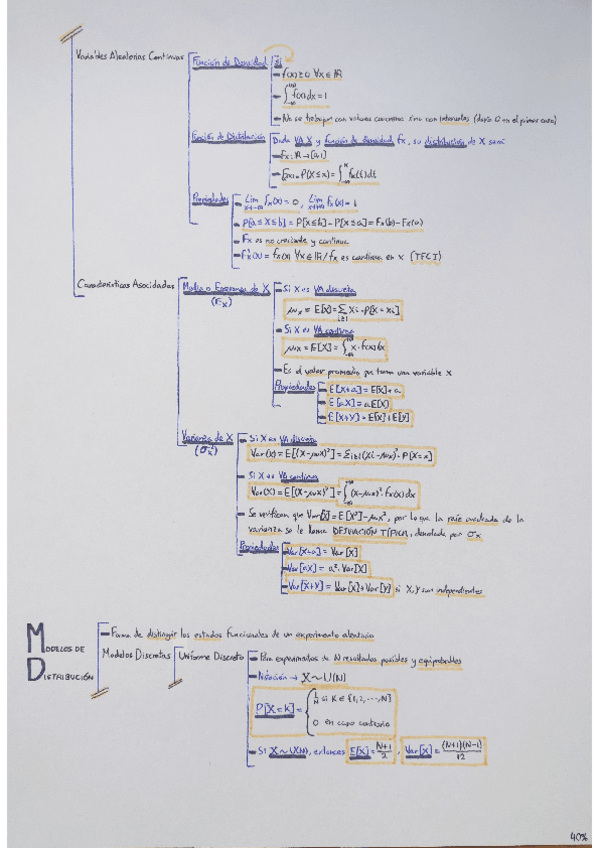 Variables Aleatorias Continuas
Función de Densidad si
f(x) ≥ 0 ∀x ∈ ℝ
∫_{-∞}^{+∞} f(x) dx = 1
No se trabajan con valores concretos sino con intervalos (daría 0 en el primer caso)
Función de Distribución
Dada VA X y función de densidad fx, su distribución de X será
Fx: ℝ → [0,1]
F(x) = P(X ≤ x) = ∫_{-∞}^{x} fx(t) dt
Propiedades
Lim_{x→-∞} Fx(x) = 0, Lim_{x→+∞} Fx(x) = 1
P[a ≤ X ≤ b] = P[X ≤ b] - P[X ≤ a] = Fx(b) - Fx(a)
Fx es no creciente y continua
F'x(x) = fx(x) ∀x ∈ ℝ / fx es continua en x (TFCI)
Características Asociadas
Media o Esperanza de X
Si X es VA discreta
μx = E[X] = Σ_{i≥1} xi · P[X = xi]
Si X es VA continua
μx = E[X] = ∫_{-∞}^{+∞} x · f(x) dx
Es el valor promedio que toma una variable X
Propiedades
E[X+a] = E[X] + a
E[aX] = aE[X]
E[X+Y] = E[X] + E[Y]
Varianza de X
Si X es VA discreta
Var(x) = E[(X-μx)²] = Σ_{i≥1} (xi-μx)² · P[X=x]
Si X es VA continua
Var(X) = E[(X-μx)²] = ∫_{-∞}^{+∞} (x-μx)² · fx(x) dx
Se verifica que Var[x] = E[X²] - μx², por lo que la raíz cuadrada de la
varianza se le llama DESVIACIÓN TÍPICA, denotada por σx
Propiedades
Var[X+a] = Var[X]
Var[aX] = a² · Var[X]
Var[X+Y] = Var[X] + Var[Y] si X, Y son independientes
MODELOS DE
DISTRIBUCIÓN
Forma de distinguir los estados funcionales de un experimento aleatorio
Modelos Discretos
Uniforme Discreto
Para experimentos de N resultados posibles y equiprobables
Notación → X ~ U(N)
P[X=k] = { 1/N si k ∈ {1, 2, ..., N}
0 en caso contrario
Si X ~ U(N), entonces E[X] = N+1/2, Var[X] = (N+1)(N-1)/12
40%